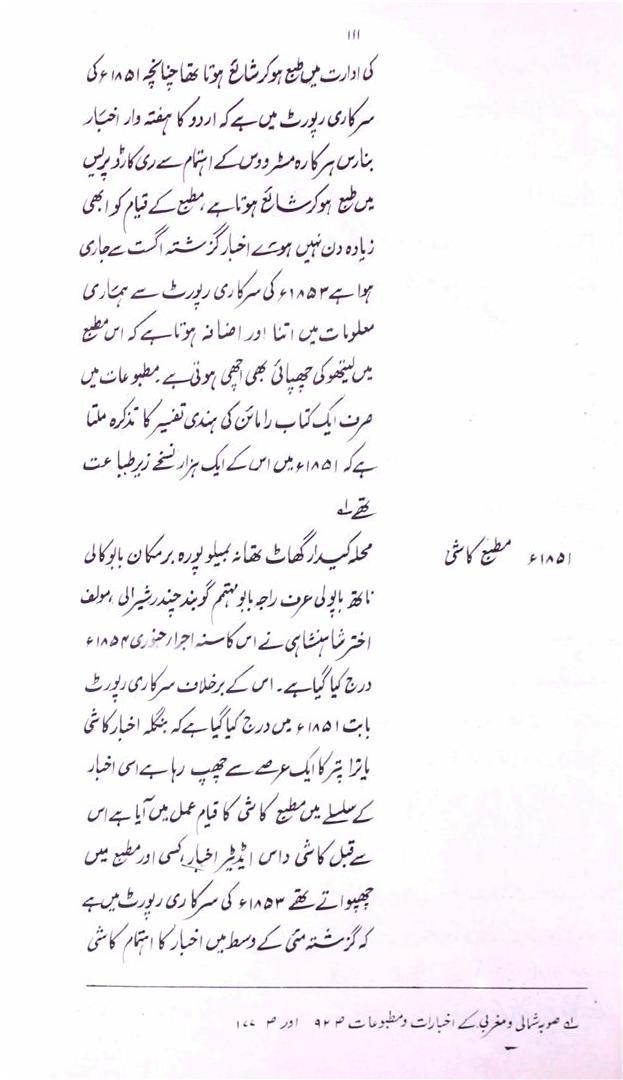 ۱۱۱
کی ادارت میں طبع ہوکر شائع ہوتا تھا چنانچہ ۱۸۵۱ء کی
سرکاری رپورٹ میں ہے کہ اردو کا ہفتہ وار اخبار
بنارس ہرکارہ مٹرودس کے اہتمام سے ری کارڈ پریس
میں طبع ہوکر شائع ہوتا ہے، مطبع کے قیام کو ابھی
زیادہ دن نہیں ہوئے اخبار گزشتہ اگست سے جاری
ہوا ہے ۱۸۵۳ء کی سرکاری رپورٹ سے ہماری
معلومات میں اتنا اور اضافہ ہوتا ہے کہ اس مطبع
میں لیتھو کی چھپائی بھی اچھی ہوتی ہے۔ مطبوعات میں
صرف ایک کتاب رامائن کی ہندی تفسیر کا تذکرہ ملتا
ہے کہ ۱۸۵۱ء میں اس کے ایک ہزار نسخے زیر طباعت
تھے ؎۱
۱۸۵۱ء مطبع کاشی
محلہ کیدار گھاٹ تھانہ بھیلوپورہ برمکان بابو کالی
ناتھ بابولی عرف راجہ بابو مہتمم گوبند چندر شیرالی، مولف
اختر شاہنشاہی نے اس کا سنہ اجرا جنوری ۱۸۵۴ء
درج کیا گیا ہے۔ اس کے برخلاف سرکاری رپورٹ
بابت ۱۸۵۱ء میں درج کیا گیا ہے کہ بنگلہ اخبار کاشی
باترا پتر کا ایک عرصے سے چھپ رہا ہے اسی اخبار
کے سلسلے میں مطبع کاشی کا قیام عمل میں آیا ہے اس
سے قبل کاشی داس ایڈیٹر اخبار، کسی اور مطبع میں
چھپواتے تھے ۱۸۵۳ء کی سرکاری رپورٹ میں ہے
کہ گزشتہ مئی کے وسط میں اخبار کا اہتمام کاشی
؎۱ صوبہ شمالی و مغربی کے اخبارات و مطبوعات ص ۹۲ اور ص ۱۷۷